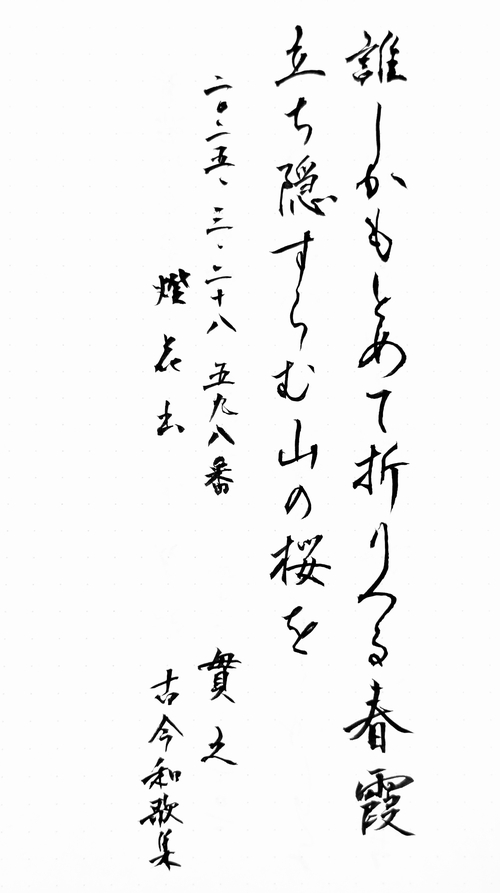 誰しかもとめて折りつる春霞
立ち隠すらむ山の桜を
二〇二五、三、二十八 五九八番
貫之
燈花
古今和歌集